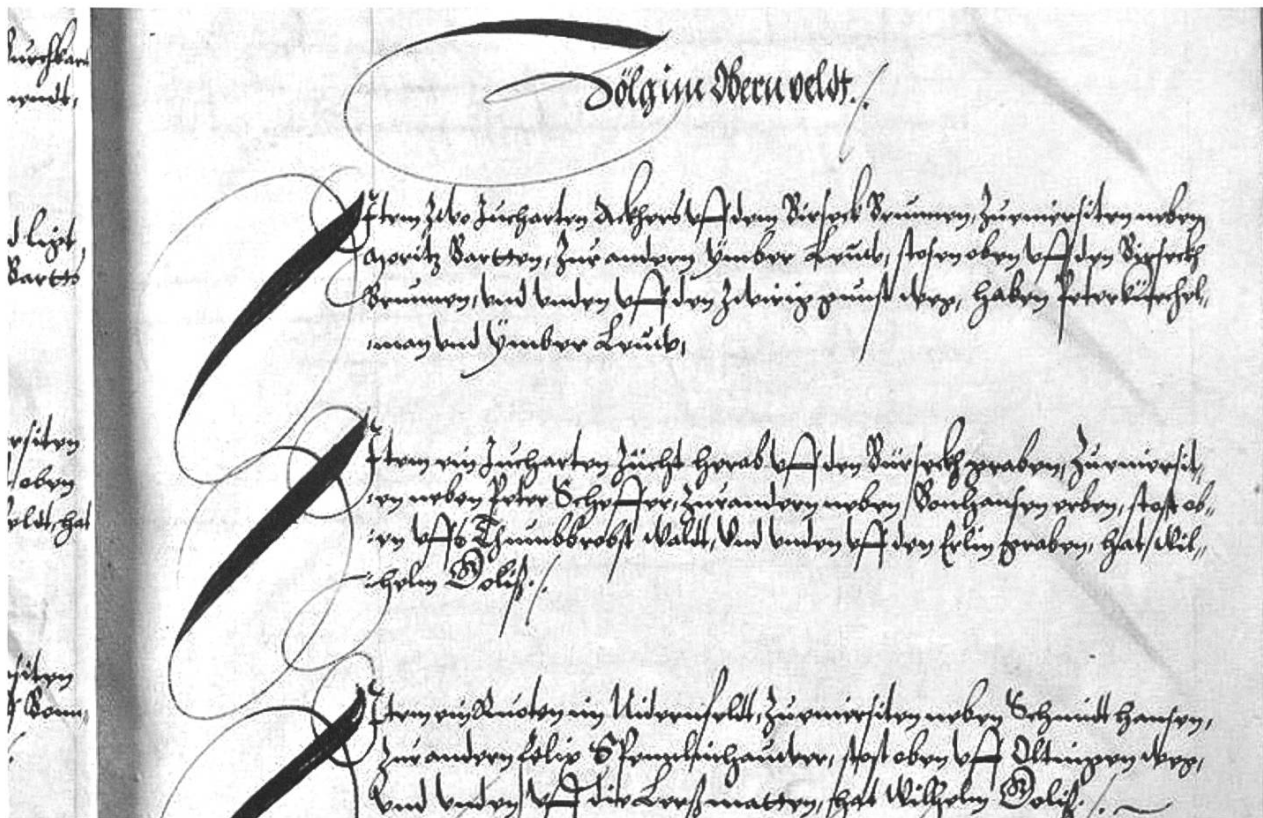 urchhart
wendt,
d ligt,
Bartts
ersiten
oben
veldt, hat
siten
Völg im Obern veldt.
Item Zwo Jucharten Ackhers vff dem Birseck Brunnen, Zu einer siten neben
Moritz Bartten, Zur andern Ymber Leuw, stosen oben vff den Birseckh
Brunnen, vnd vnden vff den Zwirig punst weg, haben Peter
man vnd Ymber Leuw,
Item ein Jucharten Zücht herab vff den Bürseckh graben, Zu einer sit„
„en neben Peter Scheffer, Zur andern neben Vonhansen erben, stost ob„
„en vffs Thumbbrobst waldt, Vnd vnden vff den Erlin graben, hat Wil„
„helm Doliß.
Item ein Ruoten im Nidernfeldt, Zu einer siten neben Schmidt Hansen,
Zur andern Felix stost oben vff Oltingen weg,
Vnd vnden vff die Leeßmatten, hat Wilhelm Doliß.